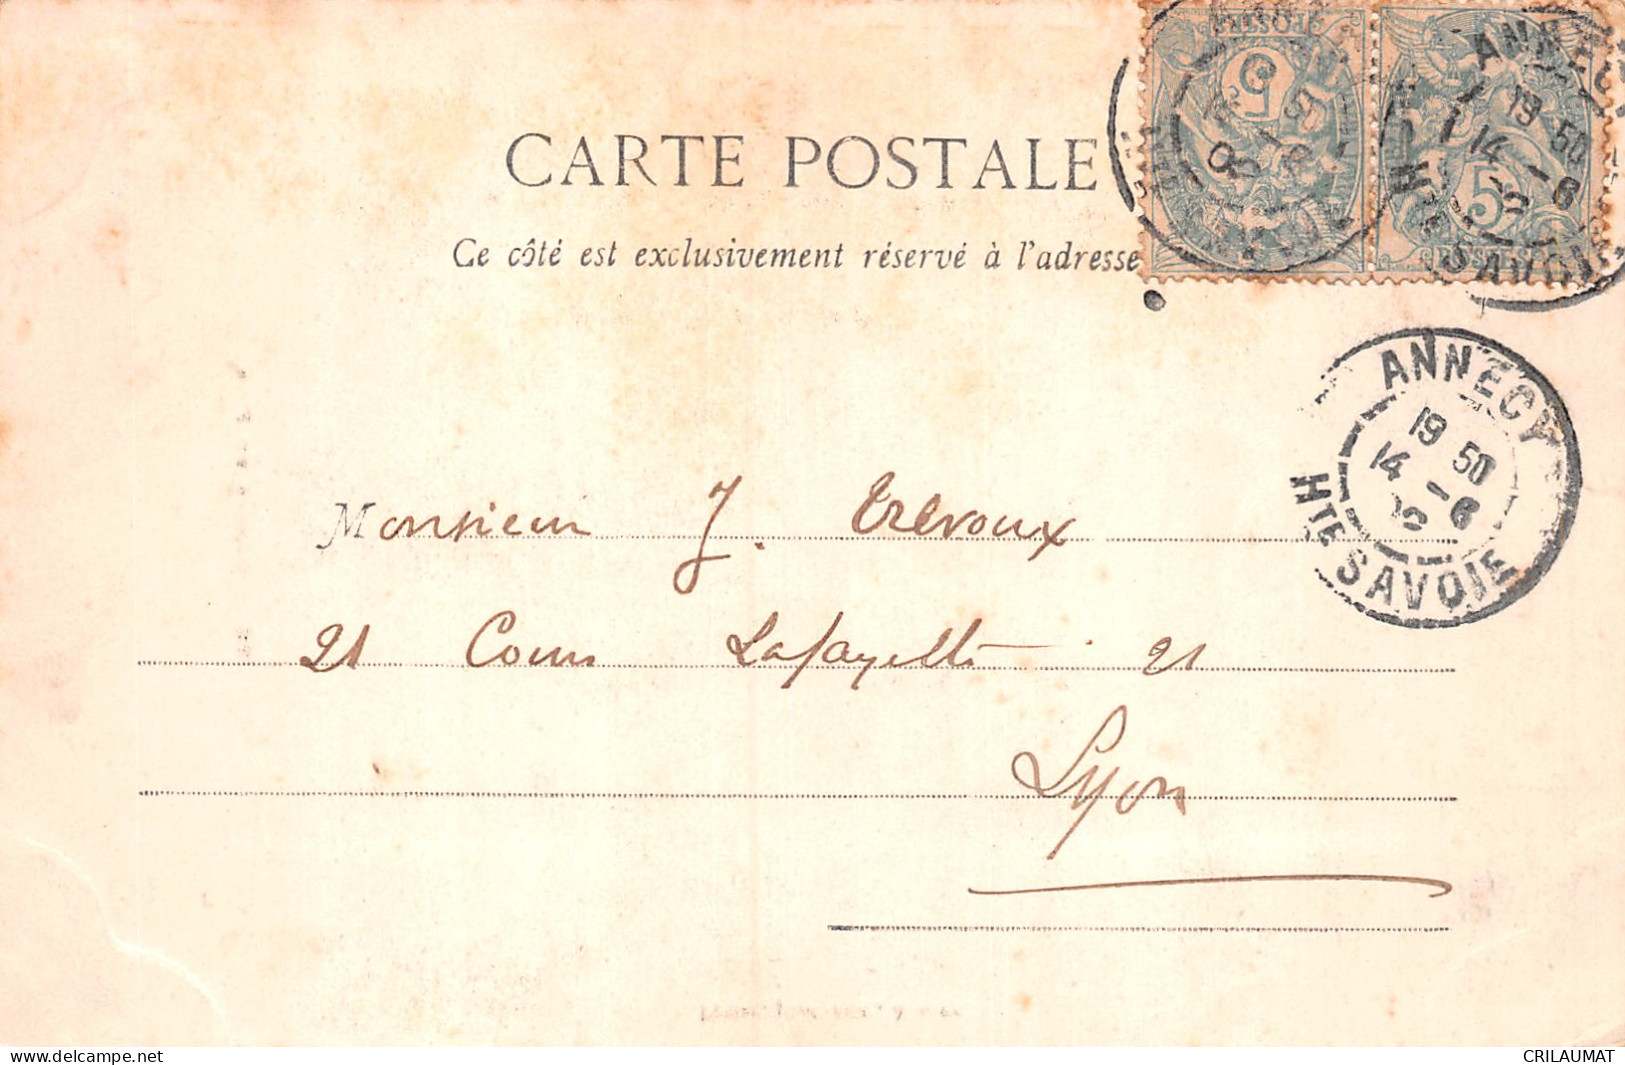 CARTE POSTALE
Ce côté est exclusivement réservé à l'adresse
5
5
ANNECY
19 50
14 -6
Hte SAVOIE
ANNECY
19 50
14 -6
Hte SAVOIE
Monsieur J. Trevoux
21 Cours Lafayette 21
Lyon
delcampe.net
CRILAUMAT